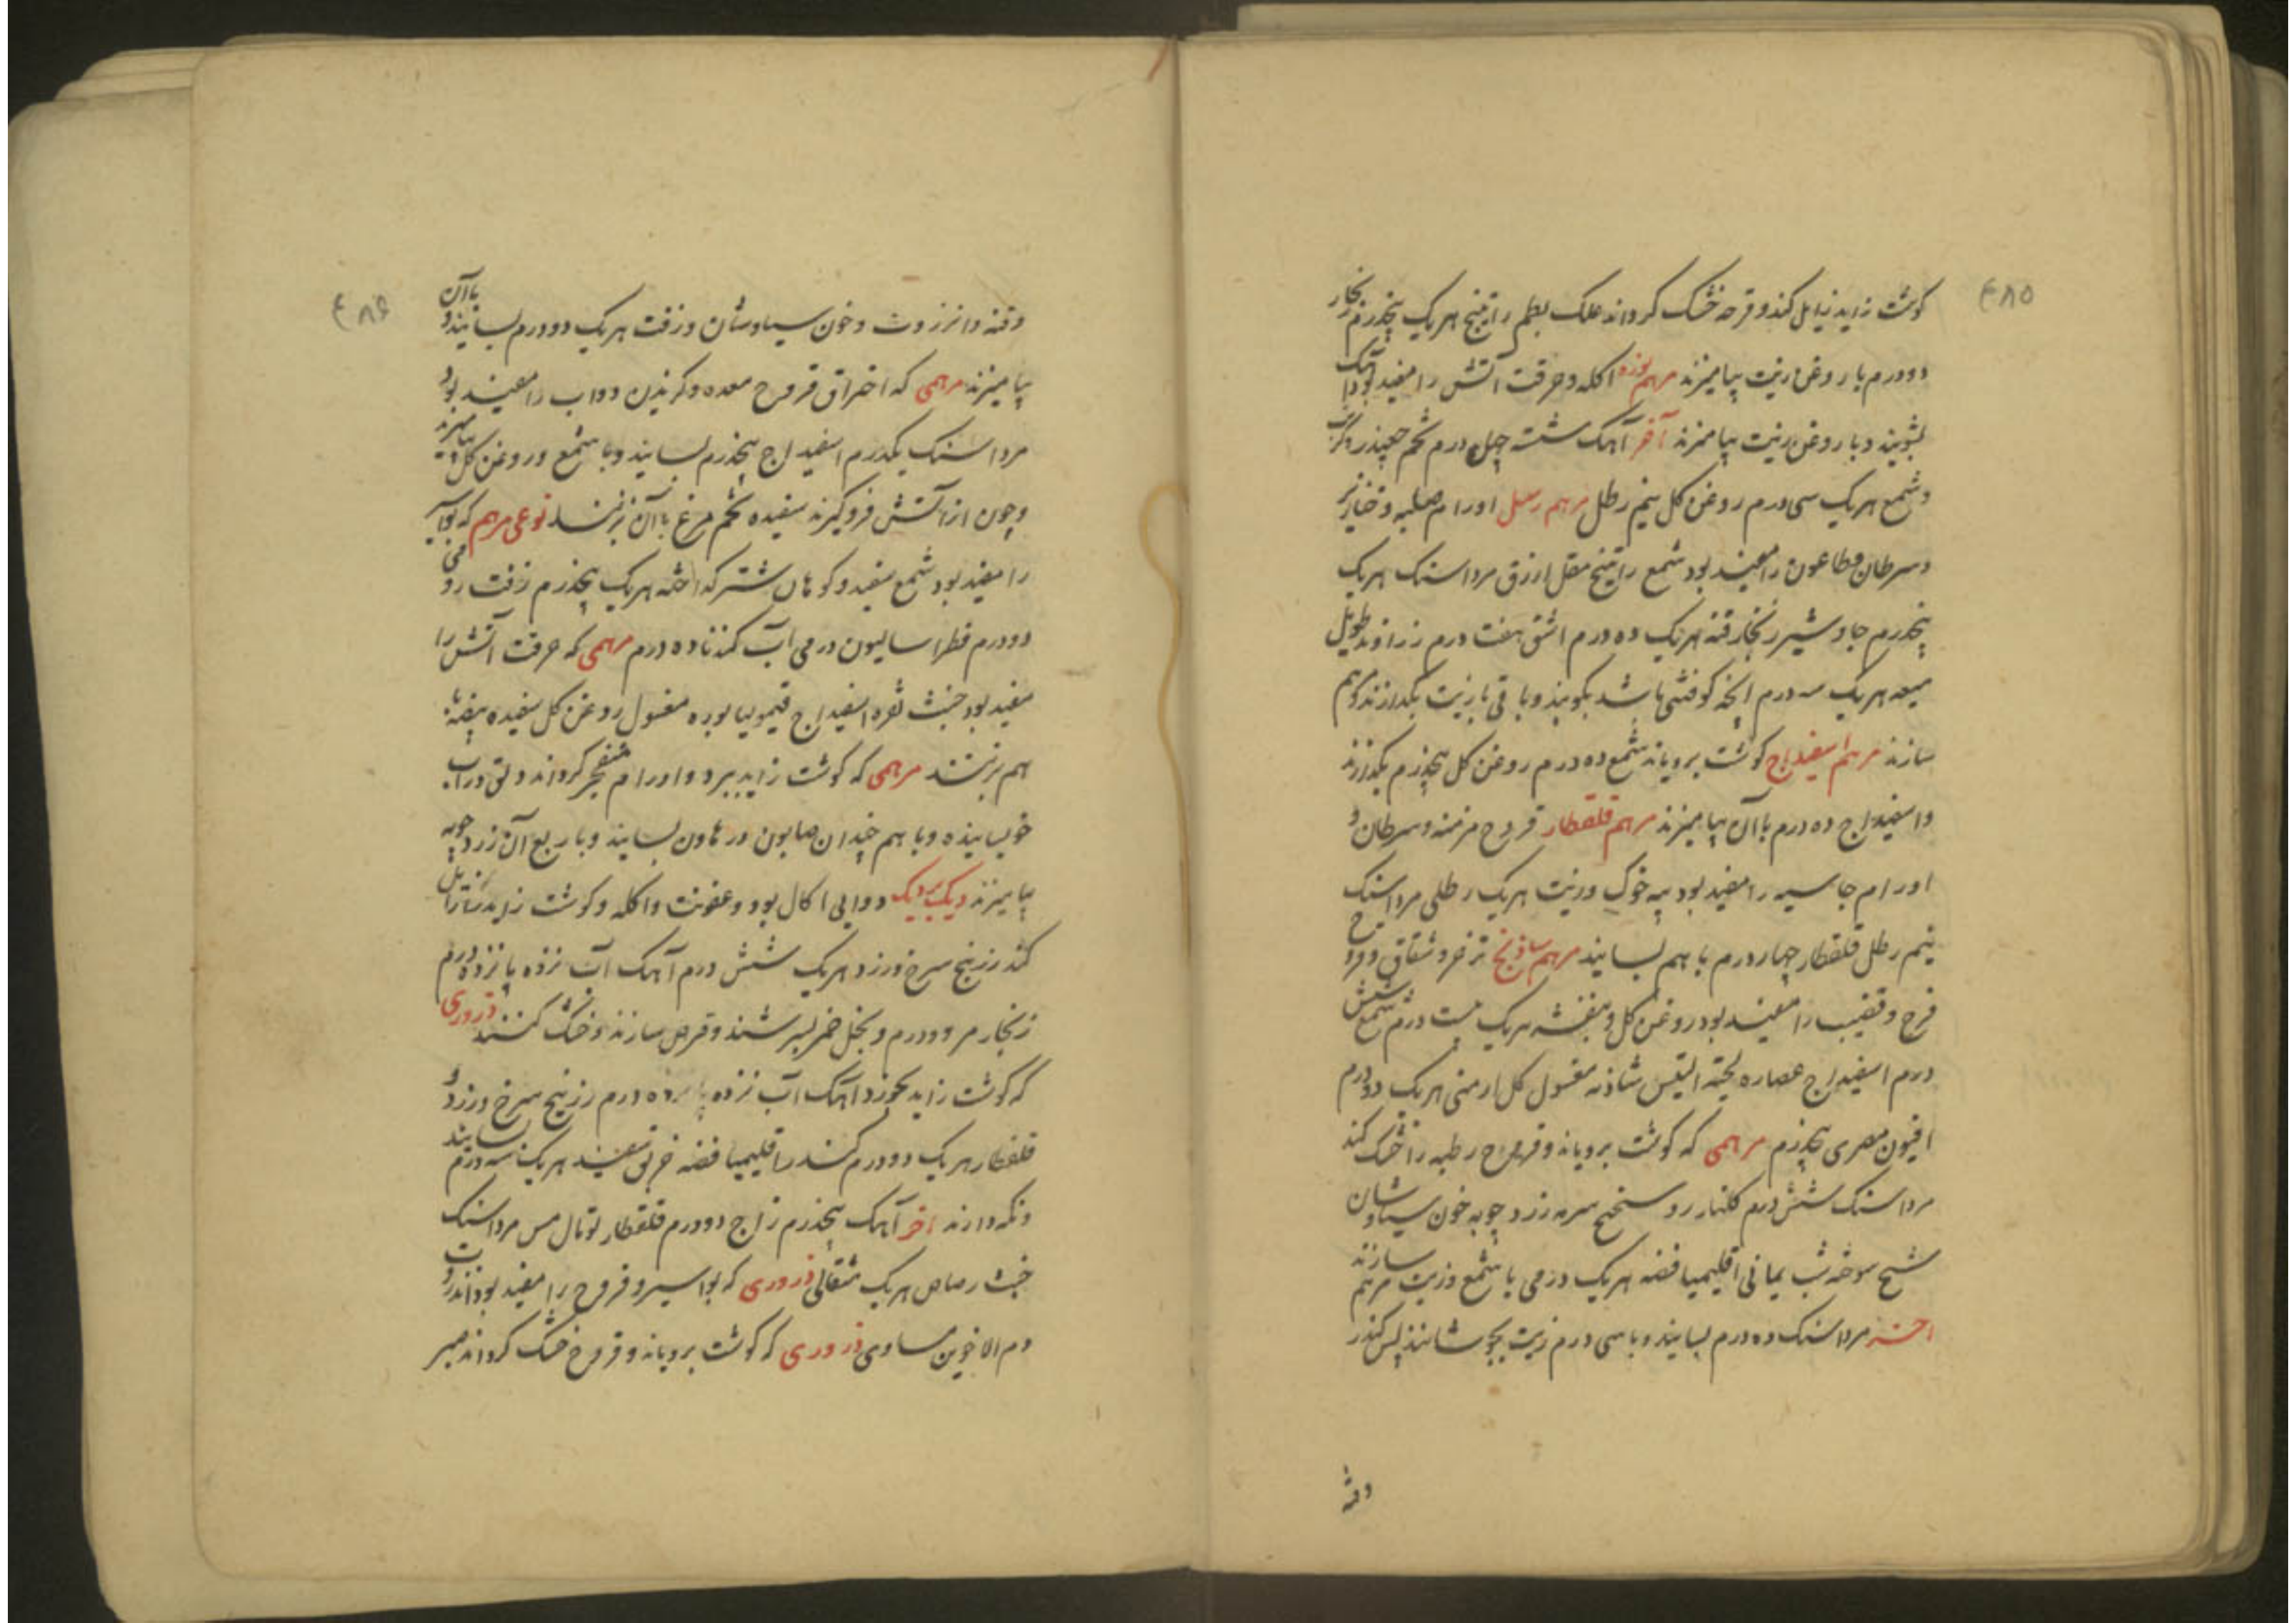 ۴۸۵
کوشت زاید زایل کند و قرحه خشک کرداند علک بطم راتینج هر یک پنجدرم زنجار
دودرم با روغن زیت بیامیزند مرهم نوره اکله و حرقت آتش را مفید بود آهک
بشویند و با روغن زیت بیامیزند آخر آهک شسته چهل درم تخم چغندر
و شمع هر یک سی درم روغن کل نیم رطل مرهم رسل اورام صلبه و خنازیر
و سرطان و طاعون را مفید بود شمع راتینج مقل ازرق مرداسنک هر یک
پنجدرم جاوشیر زنجار قنه هر یک ده درم اشق هفت درم زراوند طویل
میعه هر یک سه درم آنچه کوفتنی باشد بکوبند و باقی با زیت بکدازند و مرهم
سازند مرهم اسفیداج کوشت برویاند شمع ده درم روغن کل پنجدرم بکدازند
و اسفیداج ده درم با آن بیامیزند مرهم قلقطار قروح مزمنه و سرطان و
اورام جاسیه را مفید بود پیه خوک و زیت هر یک رطلی مرداسنک
نیم رطل قلقطار چهار درم با هم بسایند مرهم ساذنج شقاق و قروح
فرج و قضیب را مفید بود روغن کل و بنفشه هر یک بیست درم شمع شش
درم اسفیداج عصاره لحیة التیس شاذنه مغسول کل ارمنی هر یک دودرم
افیون مصری پنجدرم مرهمی که کوشت برویاند و قروح رطبه را خشک کند
مرداسنک شش درم کلنار سرمه زرد چوبه خون سیاوشان
شیح سوخته شب یمانی اقلیمیا فضه هر یک درمی با شمع و زیت مرهم سازند
آخر مرداسنک ده درم بسایند و با سی درم زیت بجوشانند پس کندر
وقنه
۴۸۶
وقنه و انزروت و خون سیاوشان و زفت هر یک دودرم بسایند و با آن
بیامیزند مرهمی که احتراق قروح معده و کزیدن دواب را مفید بود
مرداسنک یکدرم اسفیداج پنجدرم بسایند و با شمع و روغن کل بیامیزند
و چون از آتش فرو کیرند سفیده تخم مرغ با آن بزنند نوعی مرهم که بواسیر
را مفید بود شمع سفید و کوهان شتر کداخته هر یک پنجدرم زفت رومی
دودرم فطراسالیون درمی آب کندنا ده درم مرهمی که حرقت آتش را
مفید بود خبث نقره اسفیداج قیمولیا بوره مغسول روغن کل سفیده بیضه با
هم بزنند مرهمی که کوشت زاید ببرد و اورام منفجر کرداند دبق در آب
خویسانیده و با هم چندان صابون در هاون بسایند و با ربع آن زرد چوبه
بیامیزند دیک بردیک دوایی اکال بود و عفونت و اکله و کوشت زاید را زایل
کند زرنیخ سرخ و زرد هر یک شش درم آهک آب نزده پانزده درم
زنجار مر دودرم و بخل خمر بسرشند و قرص سازند و خشک کنند ذروری
که کوشت زاید بخورد آهک آب نزده درم زرنیخ سرخ و زرد و
قلقطار هر یک دودرم کندر اقلیمیا فضه خربق سفید هر یک سه درم بسایند
و نکه دارند آخر آهک پنجدرم زاج دودرم قلقطار توبال مس مرداسنک
خبث رصاص هر یک مثقالی ذروری که بواسیر و قروح را مفید بود انزروت
دم الاخوین مساوی ذروری که کوشت برویاند و قروح خشک کرداند صبر